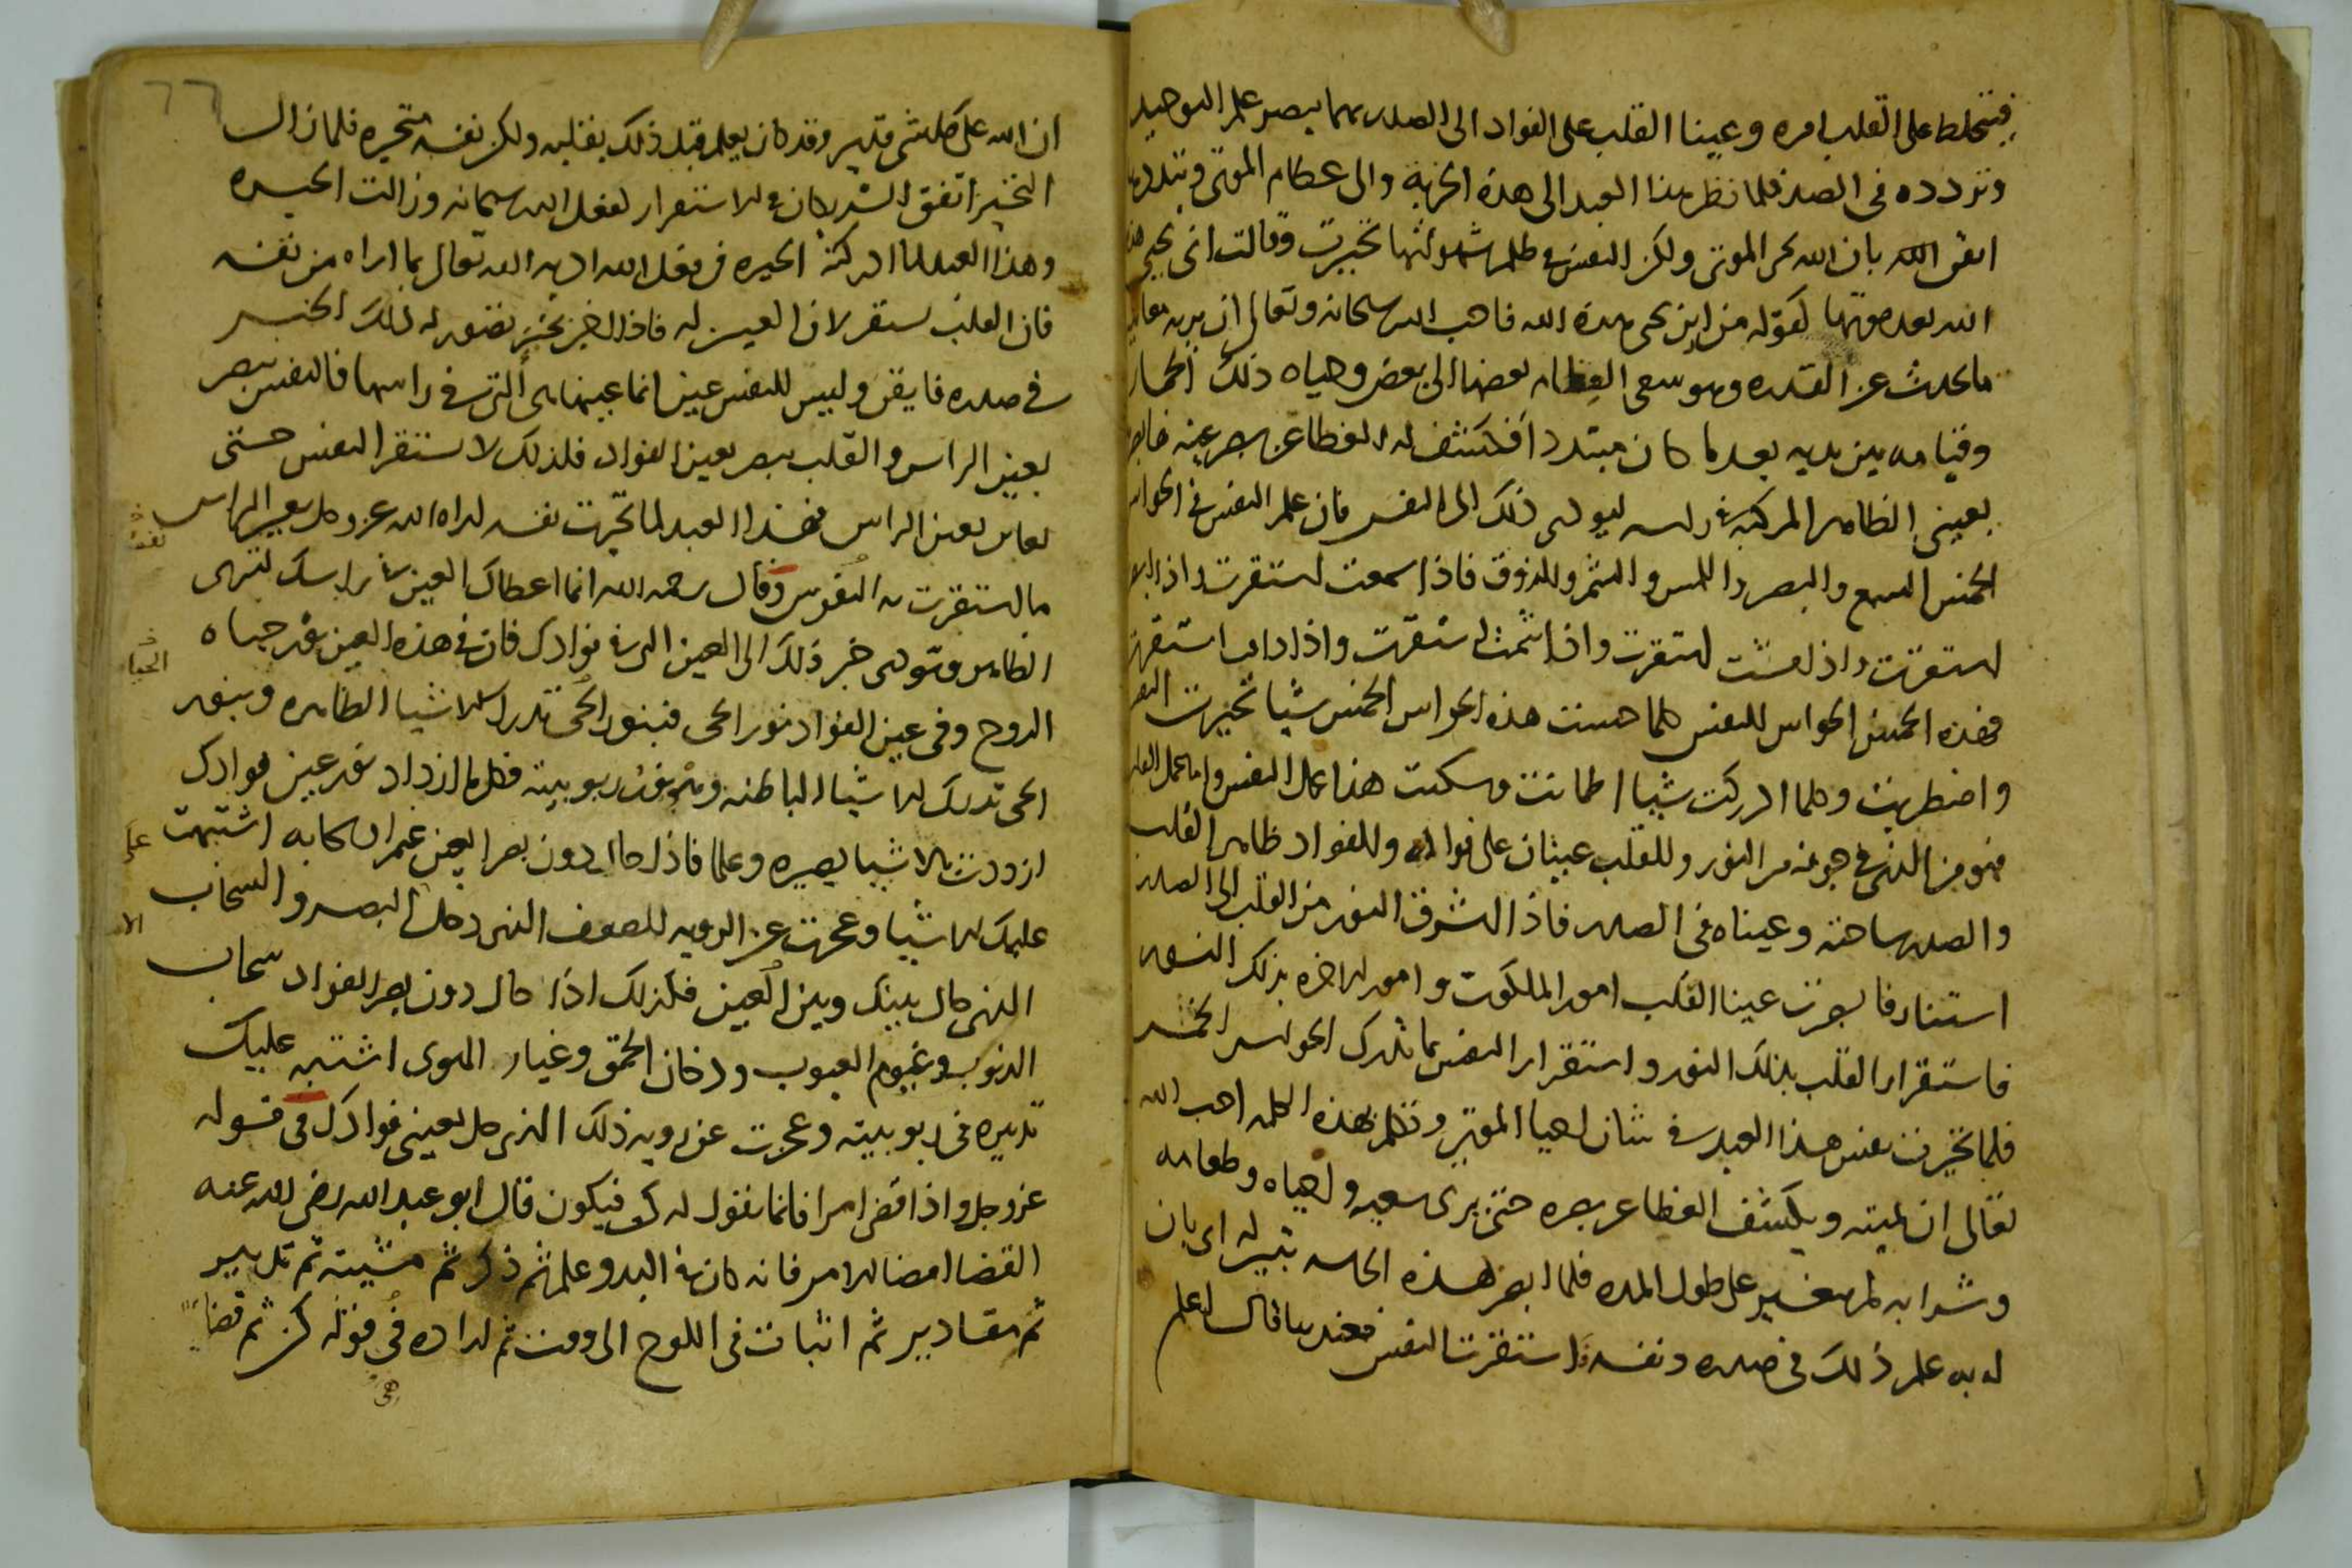 فيختلط على القلب امره وعينا القلب على الفواد الى الصدر بهما يبصر علم التوحيد
وتردده فى الصدر فلما نظر هذا العبد الى هذه الخربة والى عظام الموتى وتبددها
ايقن القلب بان الله يحيى الموتى ولكن النفس فى ظلمه شهواتها تحيرت وقالت انى يحيى هذه
الله بعد موتها كقوله من اين يحيى هذه الله فاحب الله سبحانه وتعالى ان يريه معاينه
ما يحدث عن القدره وهو سعى العظام بعضها الى بعض وحياه ذلك الحمار
وقيامه بين يديه بعد ما كان مبتددا فكشف له الغطا عن بصر عينه فابصر
بعينى الظاهر المركبة فى راسه ليودى ذلك الى النفس فان علم النفس فى الحواس
الخمس السمع والبصر واللمس والشم والذوق فاذا سمعت استقرت واذا ابصرت
استقرت واذا لمست استقرت واذا شمت استقرت واذا ذاقت استقرت
فهذه الخمس الحواس للنفس كلما حست هذه الحواس الخمس شيا تحيرت النفس
واضطربت وكلما ادركت شيا اطمانت وسكنت هذا عمل النفس واما عمل القلب
فهو من الذى فى جوفه من النور وللقلب عينان على فواده وللفواد ظاهر القلب
والصدر ساحته وعيناه فى الصدر فاذا اشرق النور من القلب الى الصدر
استنار فابصرت عينا القلب امور الملكوت وامور الاخره بذلك النور
فاستقرار القلب بذلك النور واستقرار النفس بما تدرك الحواس الخمس
فلما تحيرت نفس هذا العبد فى شان احيا الموتى وتكلم بهذه الكلمه احب الله
تعالى ان يميته ويكشف الغطا عن بصره حتى يرى سعيه واحياه وطعامه
وشرابه لم يتغير على طول المده فلما ابصر هذه الحاله تبين له اى بان
له به علم ذلك فى صدره ونفسه واستقرت النفس فعندها قال اعلم
ان الله على كل شى قدير وقد كان يعلم قبل ذلك بقلبه ولكن نفسه متحيره فلما زال
التحير اتفق الشريكان فى الاستقرار لفعل الله سبحانه وزالت الحيره
وهذا العبد لما ادركته الحيره فى فعل الله اد به الله تعالى بما اراه من نفسه
فان القلب يستقر لان العين له فاذا اخبر بخبر تصور له ذلك الخبر
فى صدره فايقن وليس للنفس عين انما عينها هى التى فى راسها فالنفس تبصر
بعين الراس والقلب يبصر بعين الفواد فلذلك لا تستقر النفس حتى
تعاين بعين الراس فهذا العبد لما تحيرت نفسه اراه الله عز وجل بعين الراس
ما استقرت به النفوس وقال رحمه الله انما اعطاك العين فى راسك لترى
الظاهر وتودى خبر ذلك الى العين التى فى فوادك فان فى هذه العين نور حياه
الروح وفى عين الفواد نور الحى فبنور الحى تدرك الاشيا الظاهره وبنور
الحى تدرك الاشيا الباطنه ومن نور ربوبيته فكلما ازداد نور عين فوادك
ازددت بالاشيا بصيره وعلما فاذا حال دون بصر العين غمام سحابه اشتبهت
عليك الاشيا وعجزت عن الرويه للضعف الذى دخل البصر والسحاب
الذى حال بينك وبين العين فكذلك اذا حال دون بصر الفواد سحاب
الذنوب وغيوم العيوب ودخان الحمق وغبار الهوى اشتبه عليك
تدبيره فى ربوبيته وعجزت عن رويه ذلك الذى حل بعينى فوادك فى قوله
عز وجل واذا قضى امرا فانما يقول له كن فيكون قال ابو عبد الله رضى الله عنه
القضا امضا الامر فانه كان فى البدو علم ثم ذكر ثم مشيته ثم تدبير
ثم مقادير ثم اثبات فى اللوح الى وقت ثم اراده فى قوله كن ثم قضا